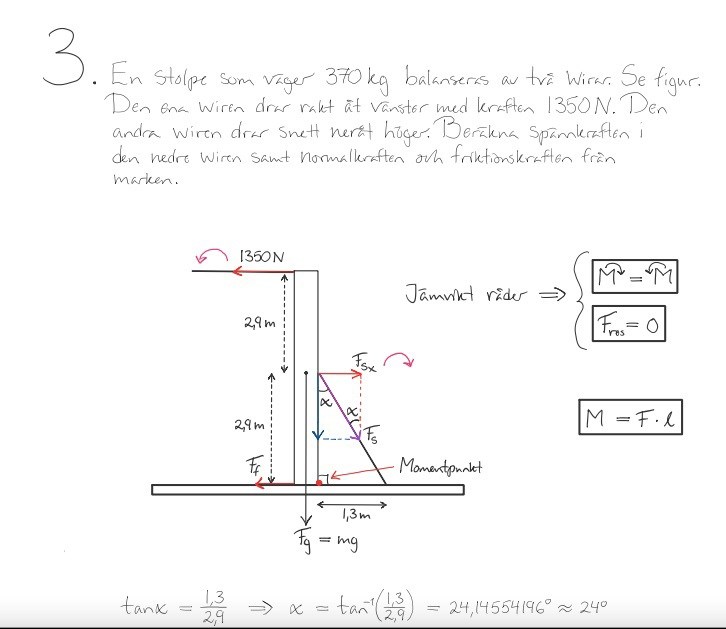 3. En stolpe som väger 370 kg balanseras av två wirar. Se figur.
Den ena wiren drar rakt åt vänster med kraften 1350 N. Den
andra wiren drar snett neråt höger. Beräkna spännkraften i
den nedre wiren samt normalkraften och friktionskraften från
marken.
1350 N
Jämvikt råder ⇒
M↷ = ↶M
F_res = 0
2,9 m
F_sx
α
α
M = F·l
2,9 m
F_s
F_f
Momentpunkt
1,3 m
F_g = mg
tanα = 1,3/2,9 ⇒ α = tan⁻¹(1,3/2,9) = 24,14554196° ≈ 24°